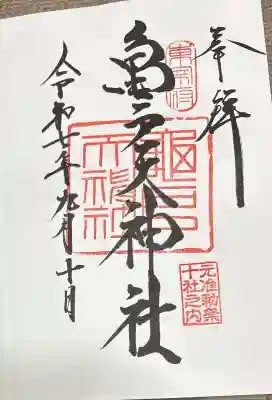 奉拝
東宰府
亀戸天神社
亀戸天神社
元准勅祭
十社之内
令和七年九月十日